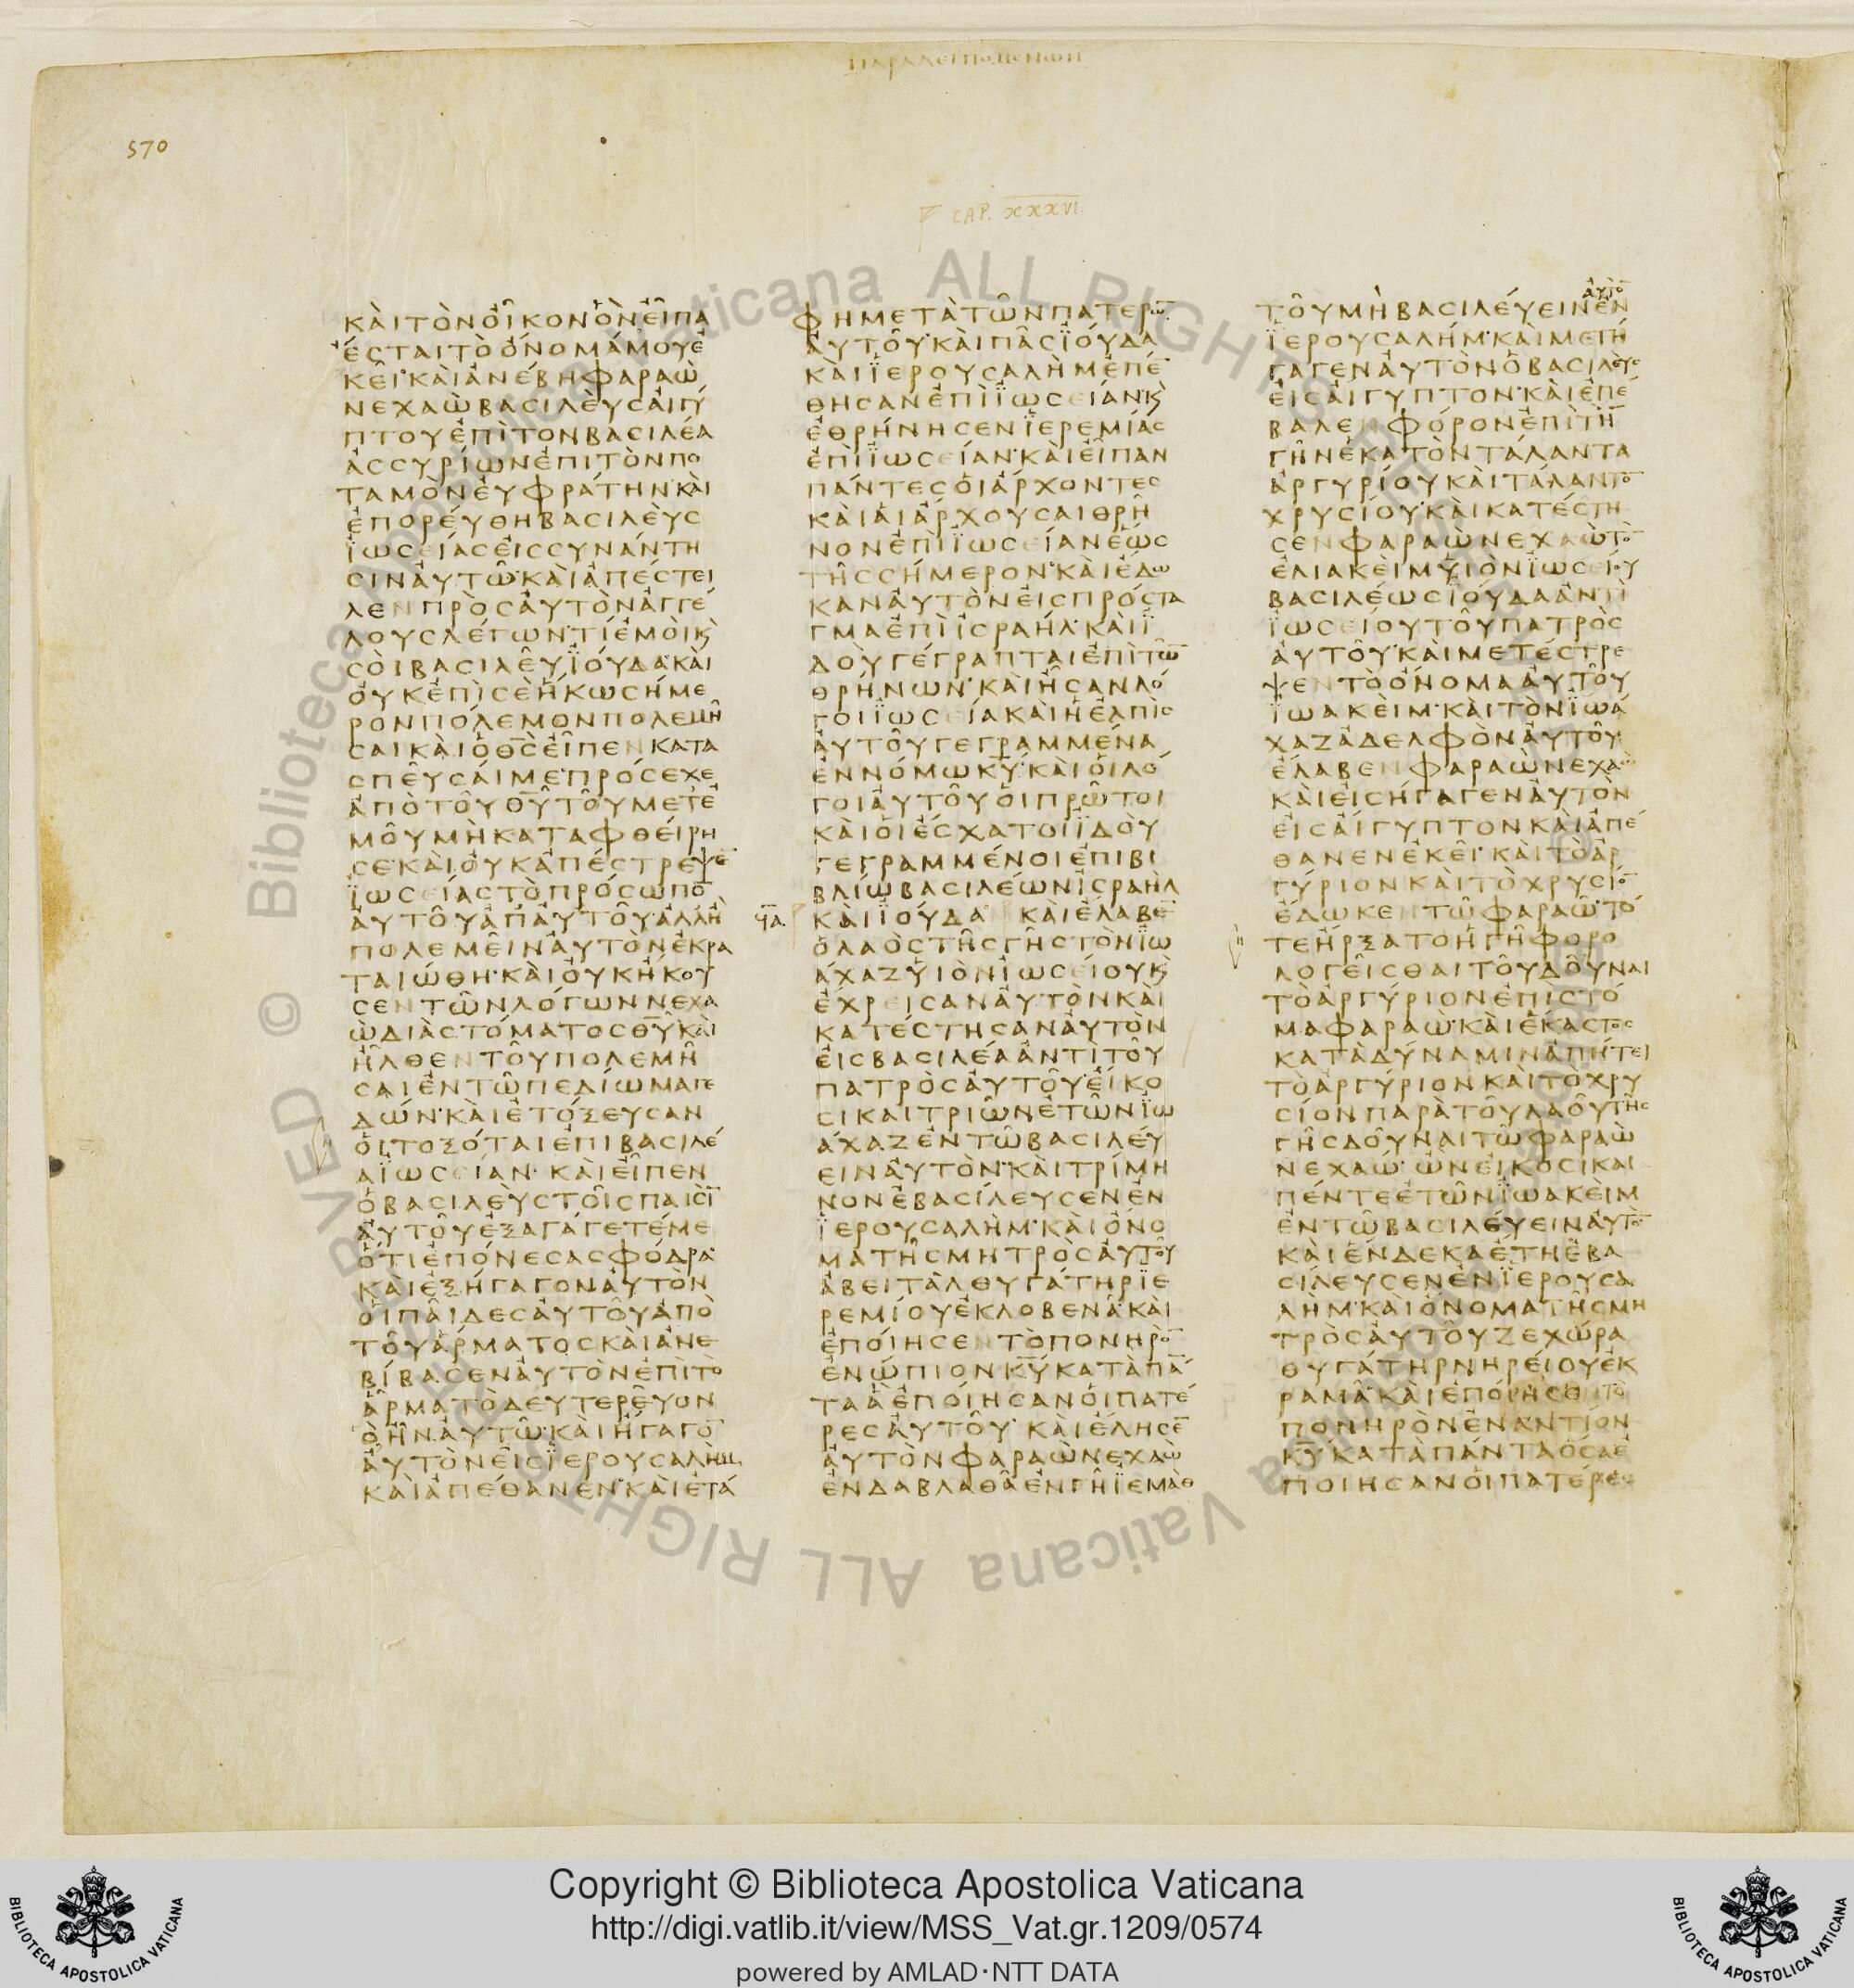 ΠΑΡΑΛΕΙΠΟΜΕΝΩΝ
570
CAP. XXXVI.
ΚΑΙΤΟΝΟΙΚΟΝΟΝΕΙΠΑ
ΕΣΤΑΙΤΟΟΝΟΜΑΜΟΥΕ
ΚΕΙΚΑΙΑΝΕΒΗΦΑΡΑΩ
ΝΕΧΑΩΒΑΣΙΛΕΥΣΑΙΓΥ
ΠΤΟΥΕΠΙΤΟΝΒΑΣΙΛΕΑ
ΑΣΣΥΡΙΩΝΕΠΙΤΟΝΠΟ
ΤΑΜΟΝΕΥΦΡΑΤΗΝΚΑΙ
ΕΠΟΡΕΥΘΗΒΑΣΙΛΕΥΣ
ΙΩΣΕΙΑΣΕΙΣΣΥΝΑΝΤΗ
ΣΙΝΑΥΤΩΚΑΙΑΠΕΣΤΕΙ
ΛΕΝΠΡΟΣΑΥΤΟΝΑΓΓΕ
ΛΟΥΣΛΕΓΩΝΤΙΕΜΟΙΚ
ΣΟΙΒΑΣΙΛΕΥΙΟΥΔΑΚΑΙ
ΟΥΚΕΠΙΣΕΗΚΩΣΗΜΕ
ΡΟΝΠΟΛΕΜΟΝΠΟΛΕΜΗ
ΣΑΙΚΑΙΟΘΣΕΙΠΕΝΚΑΤΑ
ΣΠΕΥΣΑΙΜΕΠΡΟΣΕΧΕ
ΑΠΟΤΟΥΘΥΤΟΥΜΕΤΕ
ΜΟΥΜΗΚΑΤΑΦΘΕΙΡΗ
ΣΕΚΑΙΟΥΚΑΠΕΣΤΡΕΨΕ
ΙΩΣΕΙΑΣΤΟΠΡΟΣΩΠΟ
ΑΥΤΟΥΑΠΑΥΤΟΥΑΛΛΗ
ΠΟΛΕΜΕΙΝΑΥΤΟΝΕΚΡΑ
ΤΑΙΩΘΗΚΑΙΟΥΚΗΚΟΥ
ΣΕΝΤΩΝΛΟΓΩΝΝΕΧΑ
ΩΔΙΑΣΤΟΜΑΤΟΣΘΥΚΑΙ
ΗΛΘΕΝΤΟΥΠΟΛΕΜΗ
ΣΑΙΕΝΤΩΠΕΔΙΩΜΑΓΕ
ΔΩΝΚΑΙΕΤΟΞΕΥΣΑΝ
ΟΙΤΟΞΟΤΑΙΕΠΙΒΑΣΙΛΕ
ΑΙΩΣΕΙΑΝΚΑΙΕΙΠΕΝ
ΟΒΑΣΙΛΕΥΣΤΟΙΣΠΑΙΣΙ
ΑΥΤΟΥΕΞΑΓΑΓΕΤΕΜΕ
ΟΤΙΕΠΟΝΕΣΑΣΦΟΔΡΑ
ΚΑΙΕΞΗΓΑΓΟΝΑΥΤΟΝ
ΟΙΠΑΙΔΕΣΑΥΤΟΥΑΠΟ
ΤΟΥΑΡΜΑΤΟΣΚΑΙΑΝΕ
ΒΙΒΑΣΕΝΑΥΤΟΝΕΠΙΤΟ
ΑΡΜΑΤΟΔΕΥΤΕΡΕΥΟΝ
ΟΗΝΑΥΤΩΚΑΙΗΓΑΓΟ
ΑΥΤΟΝΕΙΣΙΕΡΟΥΣΑΛΗΜ
ΚΑΙΑΠΕΘΑΝΕΝΚΑΙΕΤΑ
ΦΗΜΕΤΑΤΩΝΠΑΤΕΡΩ
ΑΥΤΟΥΚΑΙΠΑΣΙΟΥΔΑ
ΚΑΙΙΕΡΟΥΣΑΛΗΜΕΠΕ
ΘΗΣΑΝΕΠΙΙΩΣΕΙΑΝΚ
ΕΘΡΗΝΗΣΕΝΙΕΡΕΜΙΑΣ
ΕΠΙΙΩΣΕΙΑΝΚΑΙΕΙΠΑΝ
ΠΑΝΤΕΣΟΙΑΡΧΟΝΤΕΣ
ΚΑΙΑΙΑΡΧΟΥΣΑΙΘΡΗ
ΝΟΝΕΠΙΙΩΣΕΙΑΝΕΩΣ
ΤΗΣΣΗΜΕΡΟΝΚΑΙΕΔΩ
ΚΑΝΑΥΤΟΝΕΙΣΠΡΟΣΤΑ
ΓΜΑΕΠΙΙΣΡΑΗΛΚΑΙΙ
ΔΟΥΓΕΓΡΑΠΤΑΙΕΠΙΤΩ
ΘΡΗΝΩΝΚΑΙΗΣΑΝΛΟ
ΓΟΙΙΩΣΕΙΑΚΑΙΗΕΛΠΙΣ
ΑΥΤΟΥΓΕΓΡΑΜΜΕΝΑ
ΕΝΝΟΜΩΚΥΚΑΙΟΙΛΟ
ΓΟΙΑΥΤΟΥΟΙΠΡΩΤΟΙ
ΚΑΙΟΙΕΣΧΑΤΟΙΙΔΟΥ
ΓΕΓΡΑΜΜΕΝΟΙΕΠΙΒΙ
ΒΛΙΩΒΑΣΙΛΕΩΝΙΣΡΑΗΛ
ϞΑ ΚΑΙΙΟΥΔΑ ΚΑΙΕΛΑΒΕ
ΟΛΑΟΣΤΗΣΓΗΣΤΟΝΙΩ
ΑΧΑΖΥΙΟΝΙΩΣΕΙΟΥΚ
ΕΧΡΕΙΣΑΝΑΥΤΟΝΚΑΙ
ΚΑΤΕΣΤΗΣΑΝΑΥΤΟΝ
ΕΙΣΒΑΣΙΛΕΑΑΝΤΙΤΟΥ
ΠΑΤΡΟΣΑΥΤΟΥΕΙΚΟ
ΣΙΚΑΙΤΡΙΩΝΕΤΩΝΙΩ
ΑΧΑΖΕΝΤΩΒΑΣΙΛΕΥ
ΕΙΝΑΥΤΟΝΚΑΙΤΡΙΜΗ
ΝΟΝΕΒΑΣΙΛΕΥΣΕΝΕΝ
ΙΕΡΟΥΣΑΛΗΜΚΑΙΟΝΟ
ΜΑΤΗΣΜΗΤΡΟΣΑΥΤΟΥ
ΑΒΕΙΤΑΛΘΥΓΑΤΗΡΙΕ
ΡΕΜΙΟΥΕΚΛΟΒΕΝΑΚΑΙ
ΕΠΟΙΗΣΕΝΤΟΠΟΝΗΡΟ
ΕΝΩΠΙΟΝΚΥΚΑΤΑΠΑ
ΤΑΑΕΠΟΙΗΣΑΝΟΙΠΑΤΕ
ΡΕΣΑΥΤΟΥΚΑΙΕΔΗΣΕ
ΑΥΤΟΝΦΑΡΑΩΝΕΧΑΩ
ΕΝΔΑΒΛΑΘΑΕΝΓΗΙΕΜΑΘ
ΑΥΤΟ
ΤΟΥΜΗΒΑΣΙΛΕΥΕΙΝΕΝ
ΙΕΡΟΥΣΑΛΗΜΚΑΙΜΕΤΗ
ΓΑΓΕΝΑΥΤΟΝΟΒΑΣΙΛΕΥΣ
ΕΙΣΑΙΓΥΠΤΟΝΚΑΙΕΠΕ
ΒΑΛΕΝΦΟΡΟΝΕΠΙΤΗ
ΓΗΝΕΚΑΤΟΝΤΑΛΑΝΤΑ
ΑΡΓΥΡΙΟΥΚΑΙΤΑΛΑΝΤΟ
ΧΡΥΣΙΟΥΚΑΙΚΑΤΕΣΤΗ
ΣΕΝΦΑΡΑΩΝΕΧΑΩΤΟ
ΕΛΙΑΚΕΙΜΥΙΟΝΙΩΣΕΙΟΥ
ΒΑΣΙΛΕΩΣΙΟΥΔΑΑΝΤΙ
ΙΩΣΕΙΟΥΤΟΥΠΑΤΡΟΣ
ΑΥΤΟΥΚΑΙΜΕΤΕΣΤΡΕ
ΨΕΝΤΟΟΝΟΜΑΑΥΤΟΥ
ΙΩΑΚΕΙΜΚΑΙΤΟΝΙΩΑ
ΧΑΖΑΔΕΛΦΟΝΑΥΤΟΥ
ΕΛΑΒΕΝΦΑΡΑΩΝΕΧΑΩ
ΚΑΙΕΙΣΗΓΑΓΕΝΑΥΤΟΝ
ΕΙΣΑΙΓΥΠΤΟΝΚΑΙΑΠΕ
ΘΑΝΕΝΕΚΕΙΚΑΙΤΟΑΡ
ΓΥΡΙΟΝΚΑΙΤΟΧΡΥΣΙΟ
ΕΔΩΚΕΝΤΩΦΑΡΑΩΤΟ
ΤΕΗΡΞΑΤΟΗΓΗΦΟΡΟ
ΛΟΓΕΙΣΘΑΙΤΟΥΔΟΥΝΑΙ
ΤΟΑΡΓΥΡΙΟΝΕΠΙΣΤΟ
ΜΑΦΑΡΑΩΚΑΙΕΚΑΣΤΟΣ
ΚΑΤΑΔΥΝΑΜΙΝΑΠΗΤΕΙ
ΤΟΑΡΓΥΡΙΟΝΚΑΙΤΟΧΡΥ
ΣΙΟΝΠΑΡΑΤΟΥΛΑΟΥΤΗΣ
ΓΗΣΔΟΥΝΑΙΤΩΦΑΡΑΩ
ΝΕΧΑΩΩΝΕΙΚΟΣΙΚΑΙ
ΠΕΝΤΕΕΤΩΝΙΩΑΚΕΙΜ
ΕΝΤΩΒΑΣΙΛΕΥΕΙΝΑΥΤΟ
ΚΑΙΕΝΔΕΚΑΕΤΗΕΒΑ
ΣΙΛΕΥΣΕΝΕΝΙΕΡΟΥΣΑ
ΛΗΜΚΑΙΟΝΟΜΑΤΗΣΜΗ
ΤΡΟΣΑΥΤΟΥΖΕΧΩΡΑ
ΘΥΓΑΤΗΡΝΗΡΕΙΟΥΕΚ
ΡΑΜΑΚΑΙΕΠΟΙΗΣΕΝΤΟ
ΠΟΝΗΡΟΝΕΝΑΝΤΙΟΝ
ΚΥΚΑΤΑΠΑΝΤΑΟΣΑΕ
ΠΟΙΗΣΑΝΟΙΠΑΤΕΡΕΣ
© Biblioteca Apostolica Vaticana ALL RIGHTS RESERVED
Copyright © Biblioteca Apostolica Vaticana
http://digi.vatlib.it/view/MSS_Vat.gr.1209/0574
powered by AMLAD·NTT DATA
BIBLIOTECA APOSTOLICA VATICANA
BIBLIOTECA APOSTOLICA VATICANA